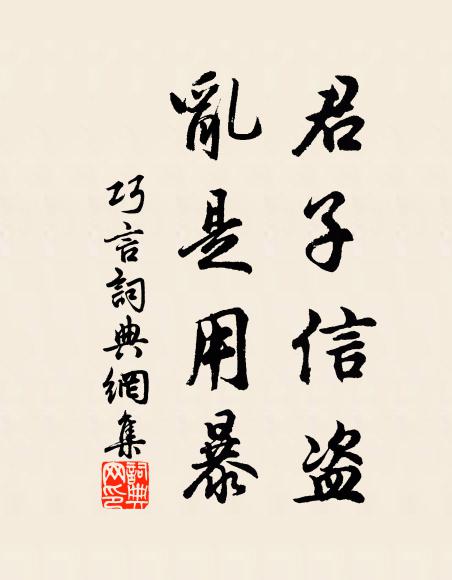 君子信盗
亂是用暴
巧言詞典網集
詞典網印